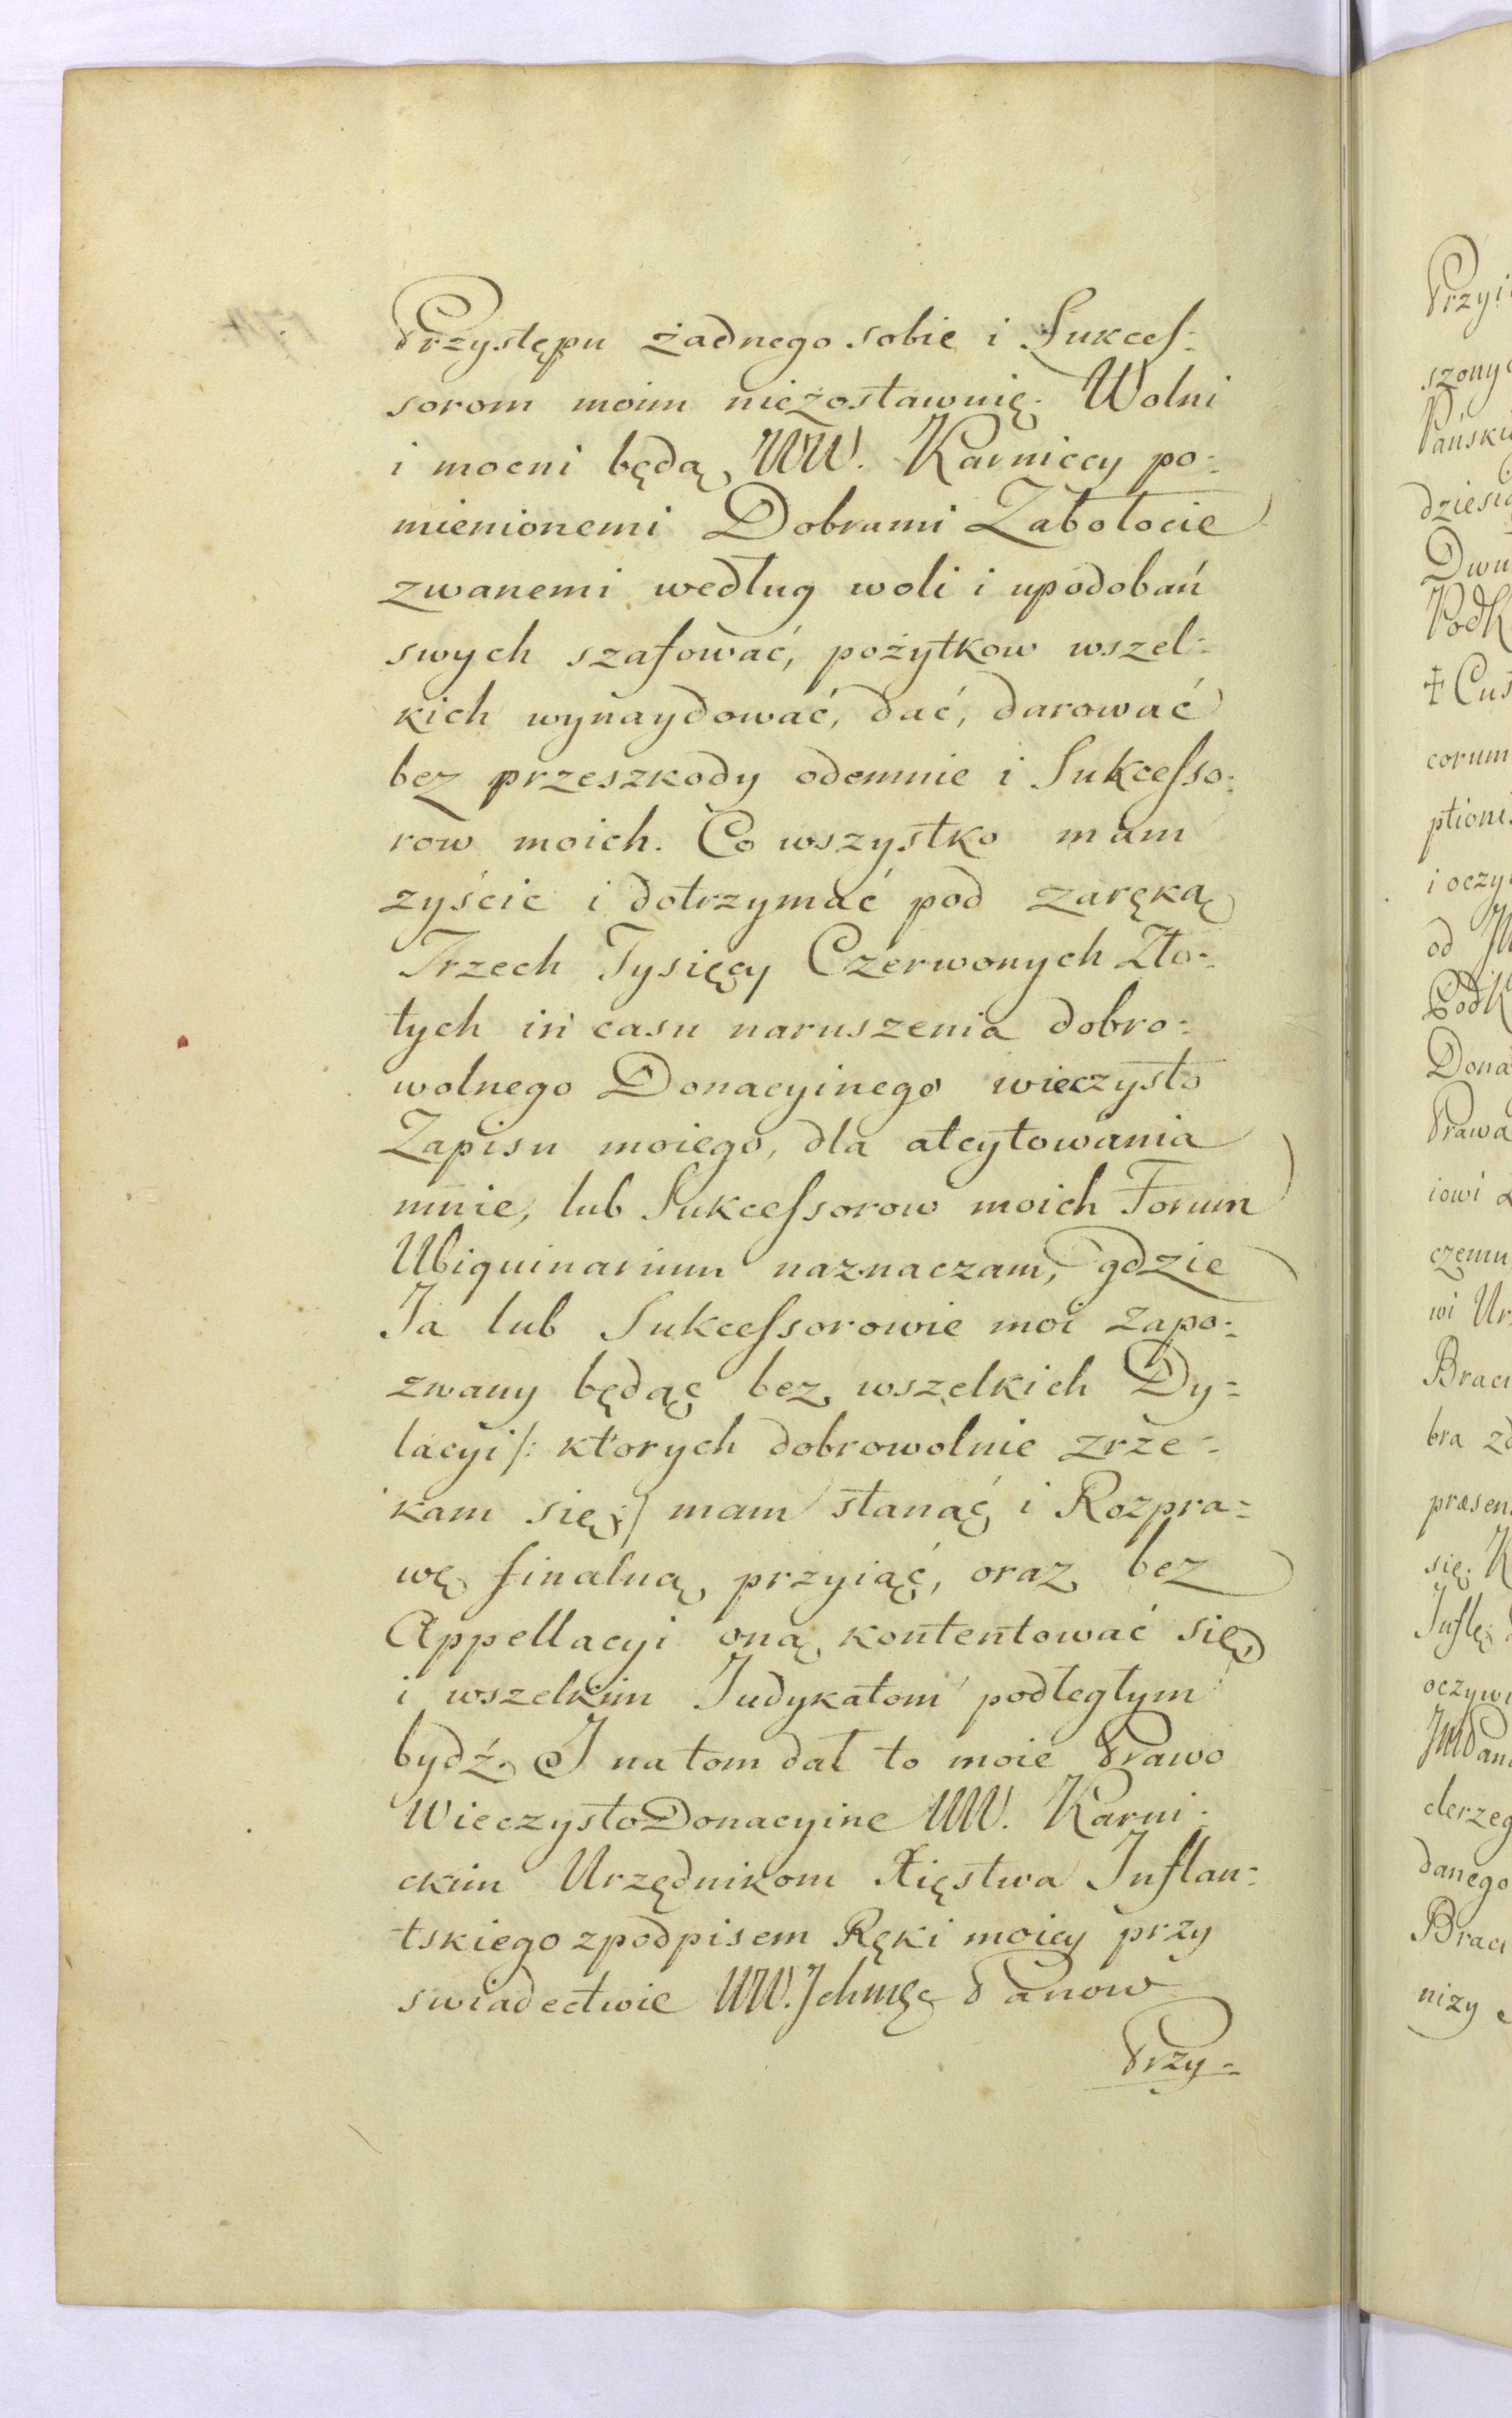 Przystępu żadnego sobie i Sukces-
sorom moim niezostawuię. Wolni
i mocni będą WW. Karniccy po-
mienionemi Dobrami Zabołocie
zwanemi według woli i upodobań
swych szafować, pożytkow wszel-
kich wynaydować, dać, darować
bez przeszkody odemnie i Sukcesso-
row moich. Co wszystko mam
zyścić i dotrzymać pod zaręką
Trzech Tysięcy Czerwonych Zło-
tych in casu naruszenia dobro-
wolnego Donacyinego wieczysto
Zapisu moiego, dla atcytowania
mnie, lub Sukcessorow moich Forum
Ubiquinarium naznaczam, gdzie
Ja lub Sukcessorowie moi zapo-
zwany będąc bez wszelkich Dy=
lacyi /: ktorych dobrowolnie zrze-
kam się :/ mam stanąć i Rozpra=
wę finalną przyiąć, oraz bez
Appellacyi oną kontentować się
i wszelkim Judykatom podległym
bydź. I na tom dał to moie Prawo
WieczystoDonacyine WW. Karni-
ckim Urzędnikom Xięstwa Inflan-
tskiego zpodpisem Ręki moiey przy
swiadectwie WW. Ichmść Panow
Przy=
Przyi
szony
Pańsk
dziesią
Dwu
PodK
‡ Cus
corum
ptionis
i oczy
od JM
PodK
Dona
Prawa
iowi
czemu
wi Ur
Braci
bra zd
præsen
się K
Inflę
oczywi
JMPan
derzeg
danego
Braci
nizy